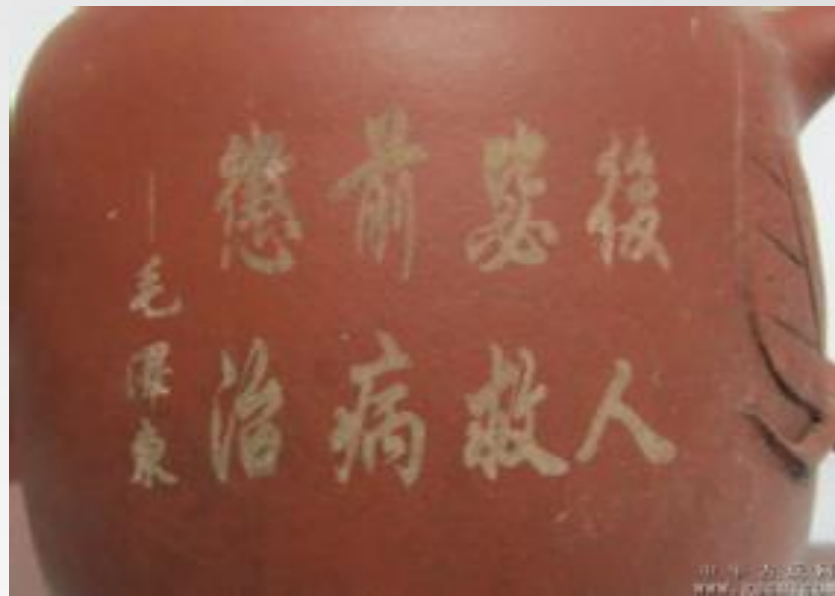 懲前毖後
治病救人
——毛澤東